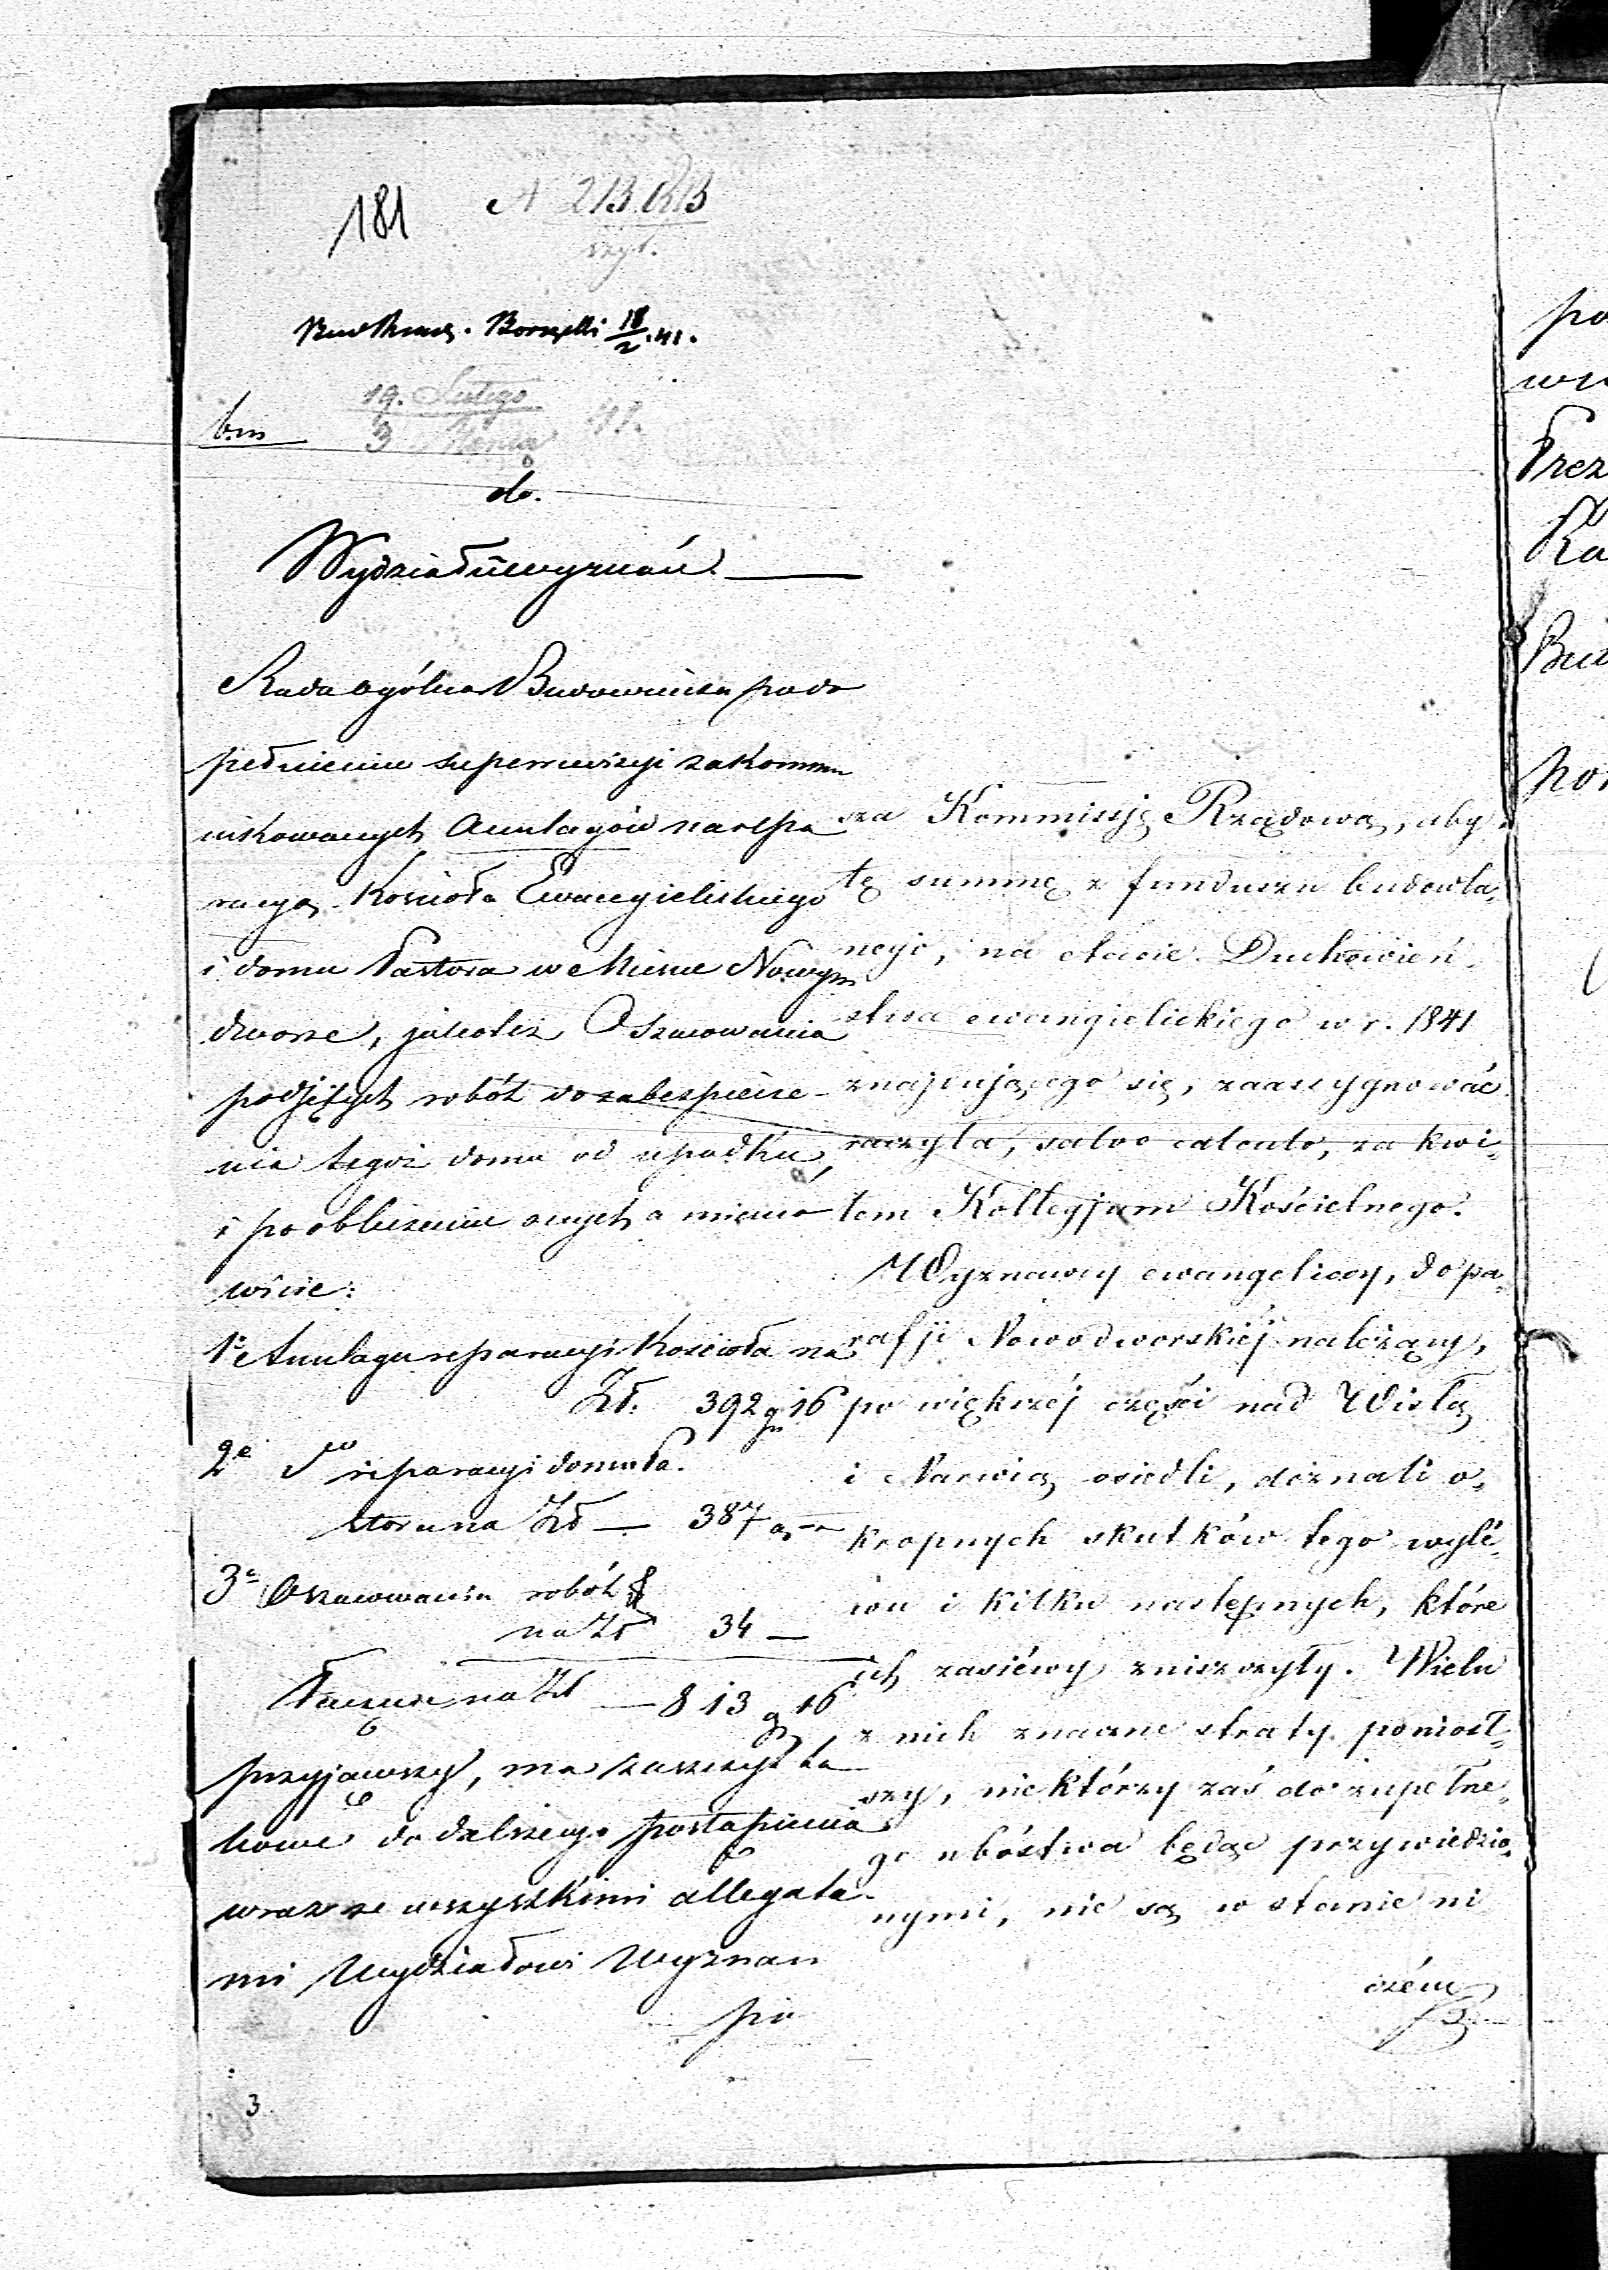 181
N 213
19. Lutego
3 Marca 41.
do.
Wydziału wyznań
Rada ogólna Budownicza po do
pełnieniu superrewizyi zakommu
nikowanych Anszlagów na repa
racyą Kościoła Ewangielickiego
i domu Pastora w Mieście Nowym
dworze, jakoteż Oszacowania
podjętych robót do zabezpiecze-
nia tegoż domu od upadku,
i po obliczeniu onych a miano
wicie:
1e Anszlagu reparacyi Kościoła na
Zł. 392 gr 16
2e do reparacyi domu Pa.
stora na Zł — 387 gr —
3e Oszacowania robót
na Zł 34 —
Łącznie na Zł — 813 gr 16
przyjąwszy, ma zaszczyt ta
kowe do dalszego postąpienia
wraz ze wszystkimi allegata
mi Wydziałowi Wyznan
sza Kommissję Rządową, aby
tę summę z funduszu budowla-
nego, na etacie Duchowień-
stwa ewangielickiego w r. 1841
znajdującego się, zaassygnować
raczyła, salvo calculo, za kwi-
tem Kollegjum Kościelnego.
Wyznawcy ewangeliccy, do pa-
rafji Nowodworskiéj należący,
po większéj części nad Wisłą
i Narwią osiedli, doznali o-
kropnych skutków tego wylé-
wu i kilku następnych, które
ich zasiéwy zniszczyły. Wielu
z nich znaczne straty poniosł-
szy, niektórzy zaś do zupełne-
go ubóstwa będąc przywiedzio-
nymi, nie są w stanie ni
czém
3